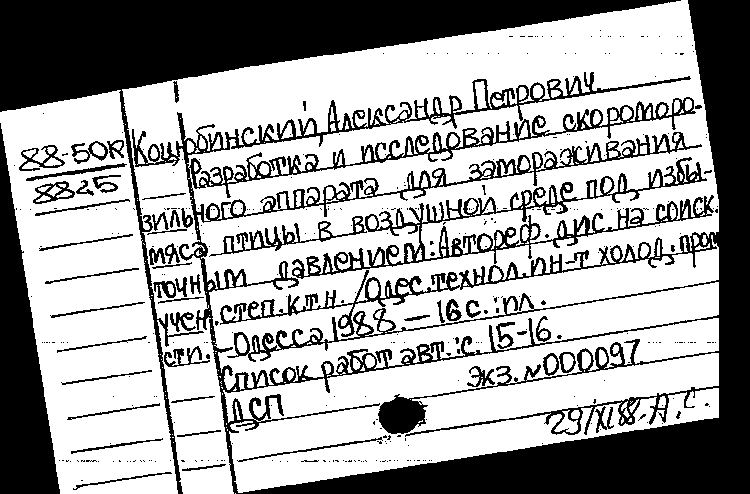 88-50К
8825
Коцюбинский, Александр Петрович.
Разработка и исследование скороморо-
зильного аппарата для замораживания
мяса птицы в воздушной среде под избы-
точным давлением: Автореф. дис. на соиск.
учен. степ. к.т.н. / Одес. технол. ин-т холод. пром
сти. — Одесса, 1988. — 16 с.: ил.
Список работ авт.: с. 15-16.
Экз. №000097
ДСП
29/XI 88. А. С.